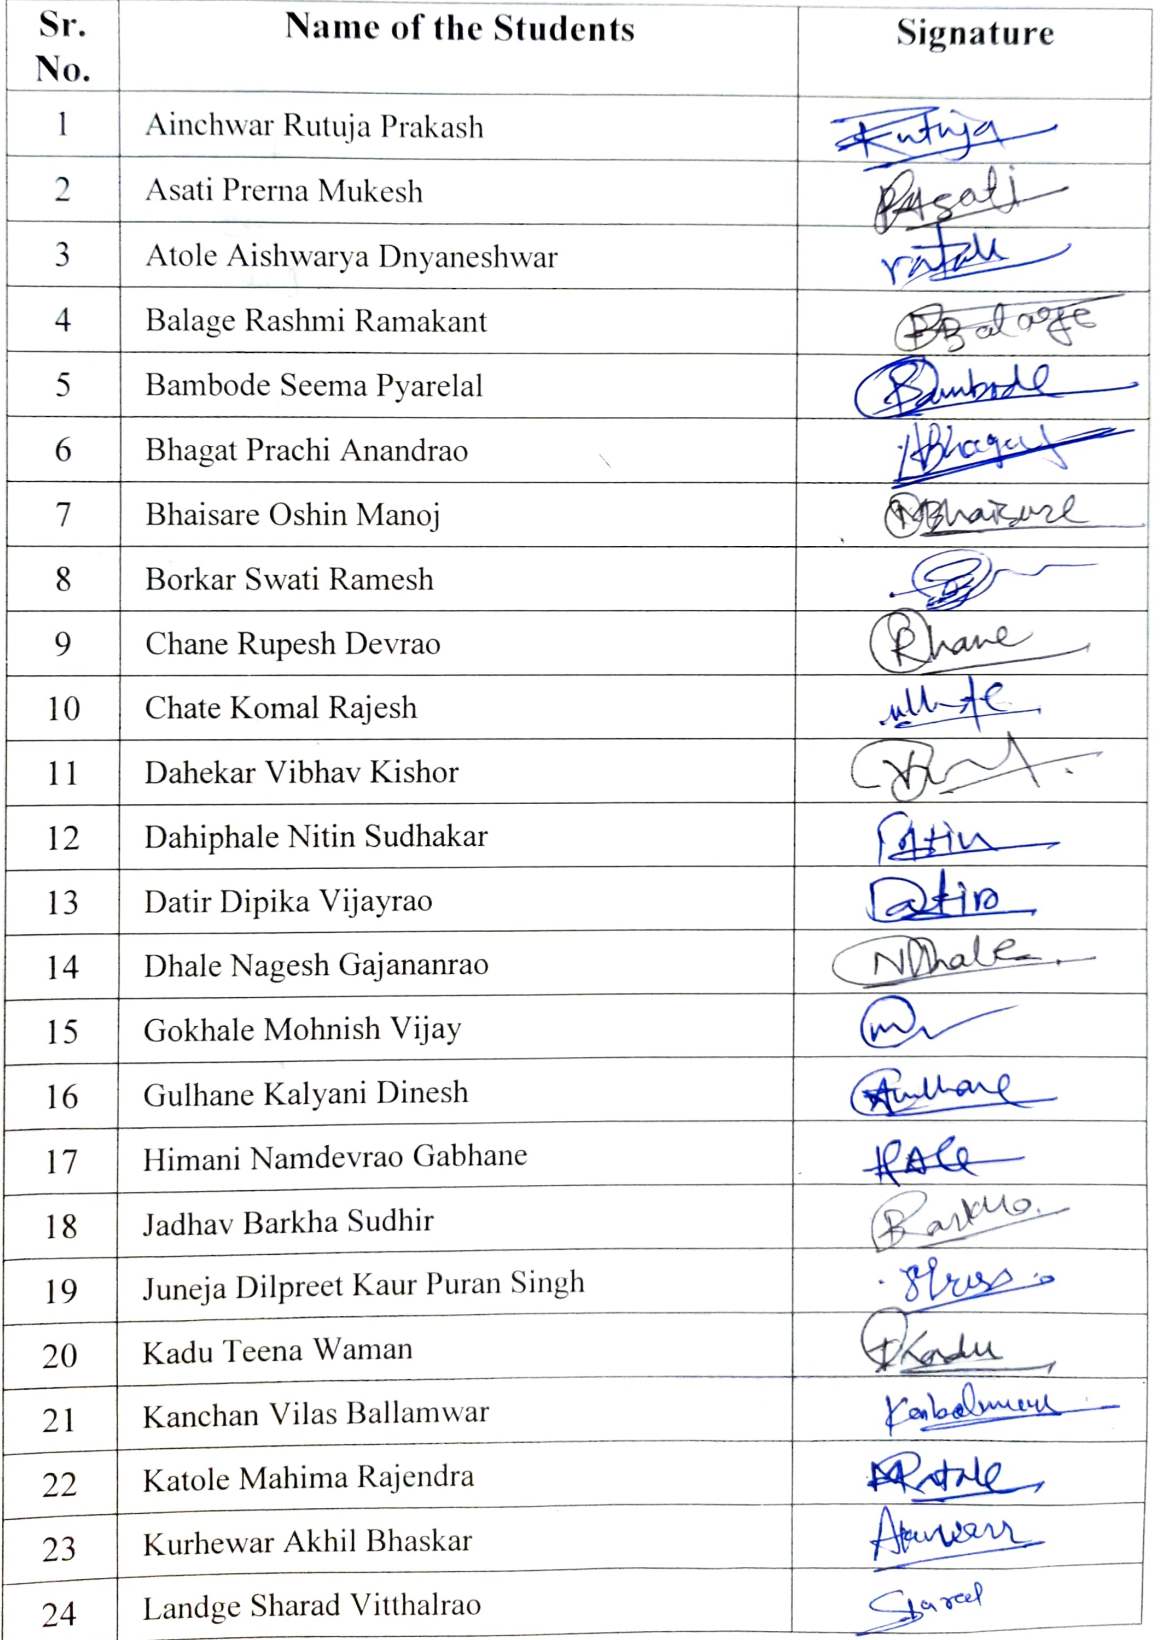 Sr. No. Name of the Students Signature
1 Ainchwar Rutuja Prakash Rutuja
2 Asati Prerna Mukesh PAsati
3 Atole Aishwarya Dnyaneshwar
4 Balage Rashmi Ramakant RBalage
5 Bambode Seema Pyarelal Bambode
6 Bhagat Prachi Anandrao
7 Bhaisare Oshin Manoj
8 Borkar Swati Ramesh
9 Chane Rupesh Devrao Rhane
10 Chate Komal Rajesh
11 Dahekar Vibhav Kishor
12 Dahiphale Nitin Sudhakar
13 Datir Dipika Vijayrao
14 Dhale Nagesh Gajananrao NDhale
15 Gokhale Mohnish Vijay
16 Gulhane Kalyani Dinesh
17 Himani Namdevrao Gabhane
18 Jadhav Barkha Sudhir Barkha
19 Juneja Dilpreet Kaur Puran Singh
20 Kadu Teena Waman TKadu
21 Kanchan Vilas Ballamwar
22 Katole Mahima Rajendra
23 Kurhewar Akhil Bhaskar
24 Landge Sharad Vitthalrao